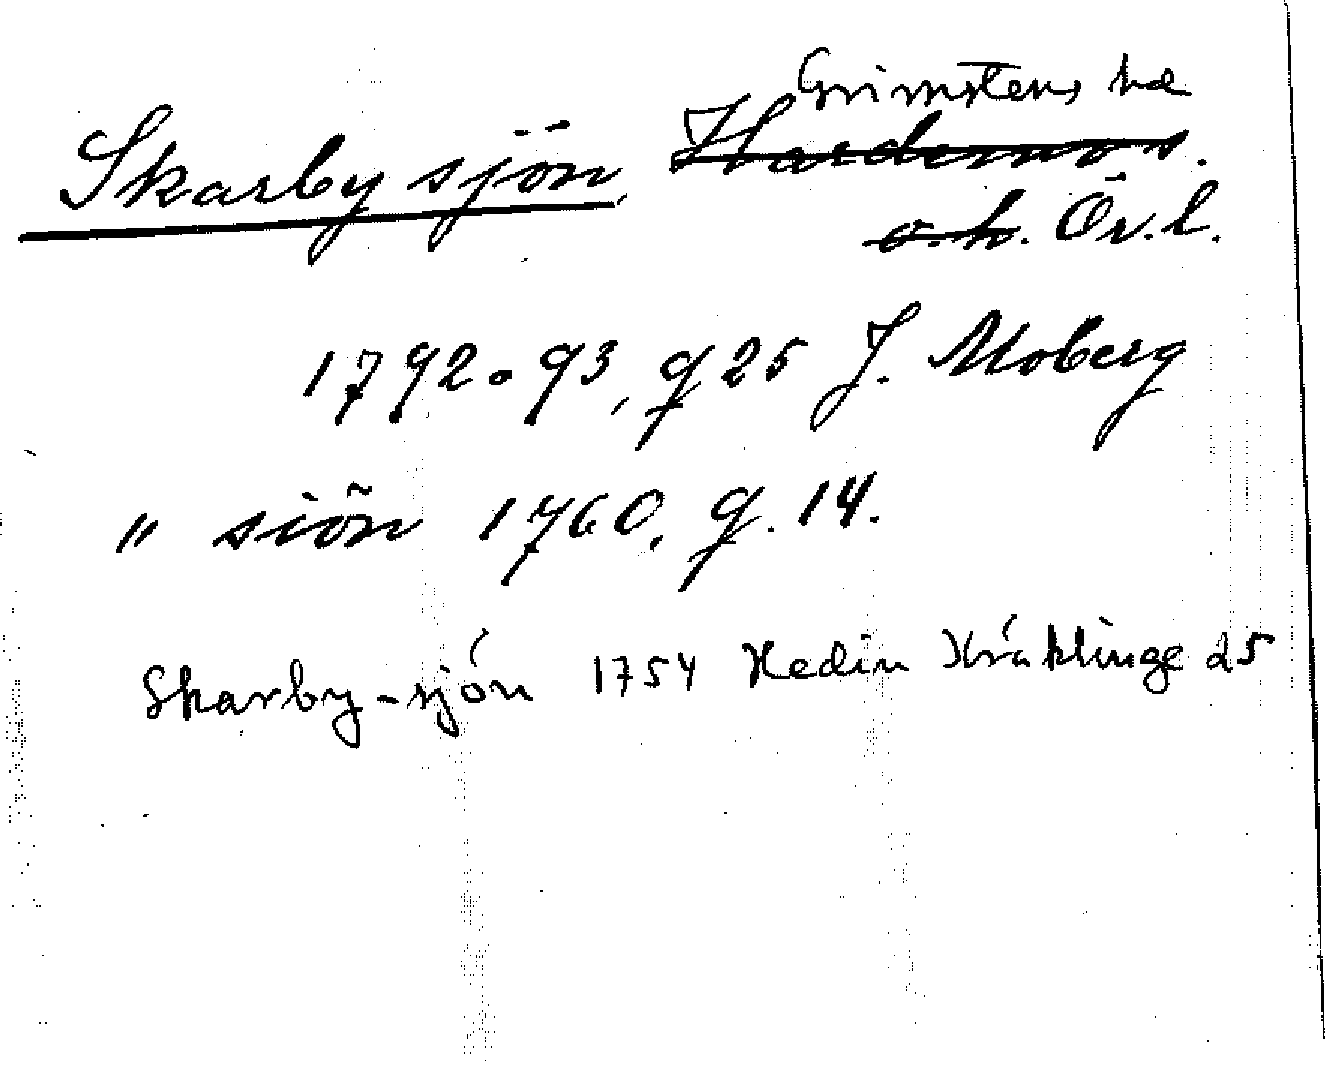 Grimstens hd
Skarbysjön, Hardemo s.
o. h. Ör. l.
1792-93, g 25 J. Moberg
" siön 1760, g. 14.
Skarby-sjön 1754 Hedin Kräklinge 25